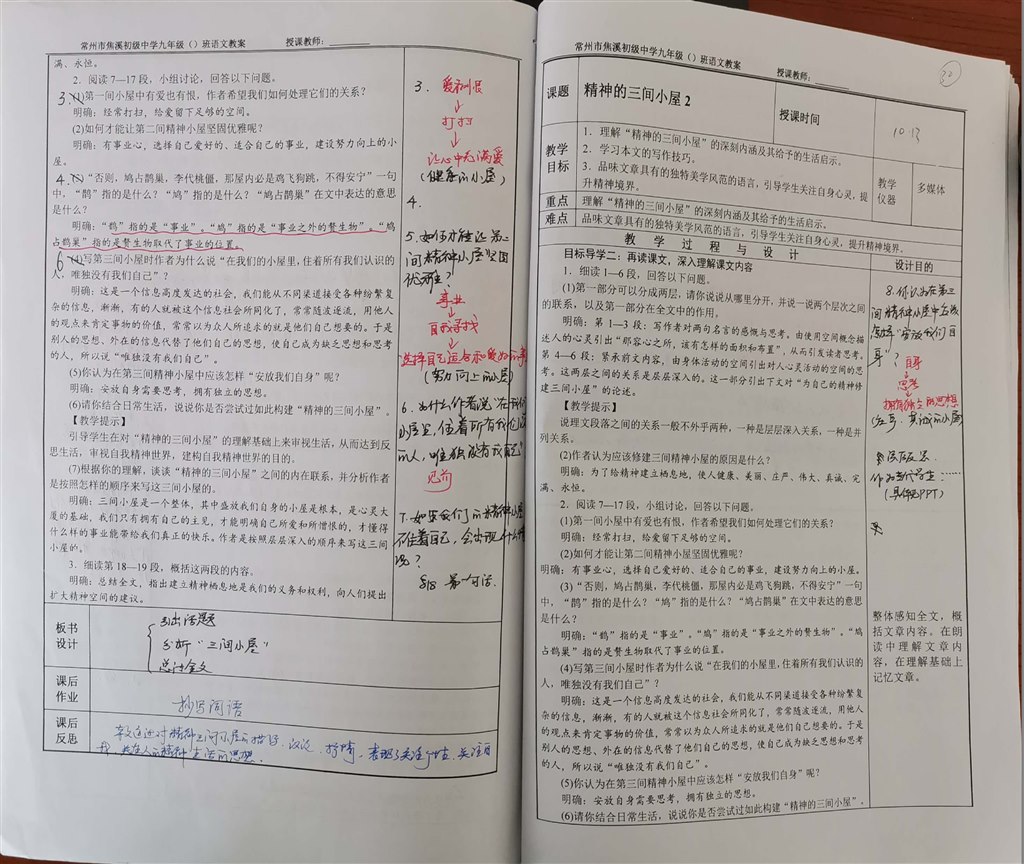 常州市焦溪初级中学九年级（）班语文教案 授课教师：
满、永恒。
2．阅读7—17段，小组讨论，回答以下问题。
3. (1)第一间小屋中有爱也有恨，作者希望我们如何处理它们的关系？
明确：经常打扫，给爱留下足够的空间。
(2)如何才能让第二间精神小屋坚固优雅呢？
明确：有事业心，选择自己爱好的、适合自己的事业，建设努力向上的小
屋。
4. “否则，鸠占鹊巢，李代桃僵，那屋内必是鸡飞狗跳，不得安宁”一句
中，“鹊”指的是什么？“鸠”指的是什么？“鸠占鹊巢”在文中表达的意思
是什么？
明确：“鹊”指的是“事业”。“鸠”指的是“事业之外的赘生物”。“鸠
占鹊巢”指的是赘生物取代了事业的位置。
6 (4)写第三间小屋时作者为什么说“在我们的小屋里，住着所有我们认识的
人，唯独没有我们自己”？
明确：这是一个信息高度发达的社会，我们能从不同渠道接受各种纷繁复
杂的信息，渐渐，有的人就被这个信息社会所同化了，常常随波逐流，用他人
的观点来肯定事物的价值，常常以为众人所追求的就是他们自己想要的。于是
别人的思想、外在的信息代替了他们自己的思想，使自己成为缺乏思想和思考
的人，所以说“唯独没有我们自己”。
(5)你认为在第三间精神小屋中应该怎样“安放我们自身”呢？
明确：安放自身需要思考，拥有独立的思想。
(6)请你结合日常生活，说说你是否尝试过如此构建“精神的三间小屋”。
【教学提示】
引导学生在对“精神的三间小屋”的理解基础上来审视生活，从而达到反
思生活，审视自我精神世界，建构自我精神世界的目的。
(7)根据你的理解，谈谈“精神的三间小屋”之间的内在联系，并分析作者
是按照怎样的顺序来写这三间小屋的。
明确：三间小屋是一个整体，其中盛放我们自身的小屋是根本，是心灵大
厦的基础，我们只有拥有自己的主见，才能明确自己所爱和所憎恨的，才懂得
什么样的事业能带给我们真正的快乐。作者是按照层层深入的顺序来写这三间
小屋的。
3．细读第18—19段，概括这两段的内容。
明确：总结全文，指出建立精神栖息地是我们的义务和权利，向人们提出
扩大精神空间的建议。
3. 爱和恨
打扫
让心中充满爱
(健康的小屋)
4.
5. 如何才能让第二
间精神小屋坚固
优雅？
事业
自我寻找
选择自己适合和爱好的事
(努力向上的小屋)
6. 为什么作者说“在我们
小屋里，住着所有我们认
的人，唯独没有我们自己”？
见前
7. 如果我们的精神小屋
不住着自己，会出现什么情
况？
第一句话.
板书
设计
引出话题
分析“三间小屋”
总结全文
课后
作业
抄写词语
课后
反思
常州市焦溪初级中学九年级（）班语文教案 授课教师：
30
课题
精神的三间小屋 2
授课时间
10.13
教学
目标
1．理解“精神的三间小屋”的深刻内涵及其给予的生活启示。
2．学习本文的写作技巧。
3．品味文章具有的独特美学风范的语言，引导学生关注自身心灵，提
升精神境界。
教学
仪器
多媒体
重点
理解“精神的三间小屋”的深刻内涵及其给予的生活启示。
难点
品味文章具有的独特美学风范的语言，引导学生关注自身心灵，提升精神境界。
教 学 过 程 与 设 计
设计目的
目标导学二：再读课文，深入理解课文内容
1．细读1—6段，回答以下问题。
(1)第一部分可以分成两层，请你说说从哪里分开，并说一说两个层次之间
的联系，以及第一部分在全文中的作用。
明确：第1—3段：写作者对两句名言的感慨与思考。由使用空间概念描
述人的心灵引出“那容心之所，该有怎样的面积和布置”，从而引发读者思考。
第4—6段：紧承前文内容，由身体活动的空间引出对人心灵活动的空间的思
考。这两层之间的关系是层层深入的。这一部分引出下文对“为自己的精神修
建三间小屋”的论述。
【教学提示】
说理文段落之间的关系一般不外乎两种，一种是层层深入关系，一种是并
列关系。
(2)作者认为应该修建三间精神小屋的原因是什么？
明确：为了给精神建立栖息地，使人健康、美丽、庄严、伟大、真诚、完
满、永恒。
2．阅读7—17段，小组讨论，回答以下问题。
(1)第一间小屋中有爱也有恨，作者希望我们如何处理它们的关系？
明确：经常打扫，给爱留下足够的空间。
(2)如何才能让第二间精神小屋坚固优雅呢？
明确：有事业心，选择自己爱好的、适合自己的事业，建设努力向上的小屋。
(3)“否则，鸠占鹊巢，李代桃僵，那屋内必是鸡飞狗跳，不得安宁”一句
中，“鹊”指的是什么？“鸠”指的是什么？“鸠占鹊巢”在文中表达的意思
是什么？
明确：“鹊”指的是“事业”。“鸠”指的是“事业之外的赘生物”。“鸠
占鹊巢”指的是赘生物取代了事业的位置。
(4)写第三间小屋时作者为什么说“在我们的小屋里，住着所有我们认识的
人，唯独没有我们自己”？
明确：这是一个信息高度发达的社会，我们能从不同渠道接受各种纷繁复
杂的信息，渐渐，有的人就被这个信息社会所同化了，常常随波逐流，用他人
的观点来肯定事物的价值，常常以为众人所追求的就是他们自己想要的。于是
别人的思想、外在的信息代替了他们自己的思想，使自己成为缺乏思想和思考
的人，所以说“唯独没有我们自己”。
(5)你认为在第三间精神小屋中应该怎样“安放我们自身”呢？
明确：安放自身需要思考，拥有独立的思想。
(6)请你结合日常生活，说说你是否尝试过如此构建“精神的三间小屋”。
8. 你认为在第三
间精神小屋中应该
怎样“安放我们自
身”？
自身
思考
拥有独立的思想
作为当代学生……
(具体见PPT)
整体感知全文，概
括文章内容。在朗
读中理解文章内
容，在理解基础上
记忆文章。